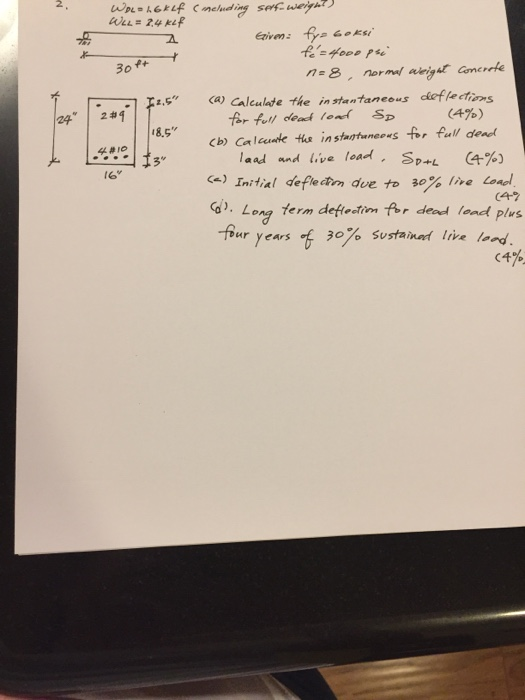 2. WDL = 1.6 KLF (including self-weight)
WLL = 2.4 KLF
Given: fy = 60 ksi
fc' = 4000 psi
30 ft
n = 8, normal weight concrete
24" 2 #9 2.5"
18.5"
4 #10 3"
16"
(a) Calculate the instantaneous deflections
for full dead load δD (4%)
(b) Calculate the instantaneous for full dead
load and live load. δD+L (4%)
(c) Initial deflection due to 30% live load.
(4%
(d). Long term deflection for dead load plus
four years of 30% sustained live load.
(4%